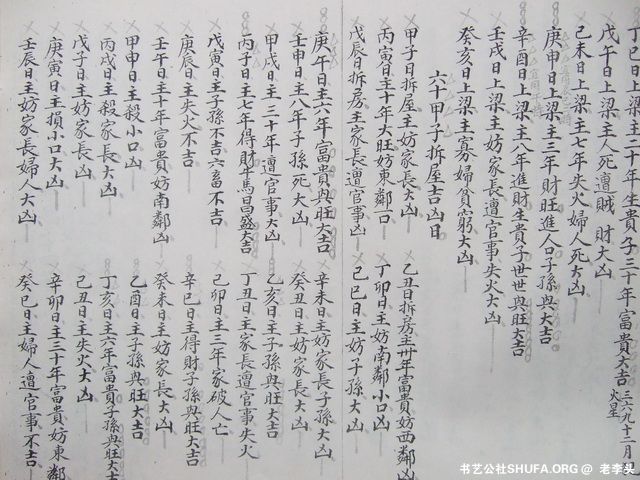 丁巳日上梁主二十年生貴子三十年富貴大吉 三六九十二月
火星
戊午日上梁主人死遭賊 財大凶
己未日上梁主七年失火婦人死大凶
庚申日上梁主三年財旺進人口子孫興大吉
辛酉日上梁主八年進財生貴子世世興旺大吉
壬戌日上梁主妨家長遭官事失火大凶
癸亥日上梁主寡婦貧窮大凶
六十甲子拆屋吉凶日
甲子日拆屋主妨家長大凶 乙丑日拆房主卅年富貴妨西鄰凶
丙寅日主十年大旺妨東鄰口 丁卯日主妨南鄰小口凶
戊辰日拆房主家長遭官事凶 己巳日主妨子孫大凶
庚午日主六年富貴興旺大吉 辛未日主妨家長子孫大凶
壬申日主八年子孫死大凶 癸丑日主妨家長大凶
甲戌日主三十年遭官事大凶 乙亥日主子孫興旺大吉
丙子日主七年得財牛馬昌盛大吉 丁丑日主家長遭官事失火
戊寅日主子孫不吉六畜不吉 己卯日主三年家破人亡
庚辰日主失火不吉 辛巳日主得財子孫興旺大吉
壬午日主十年富貴妨南鄰凶 癸未日主妨家長大凶
甲申日主殺小口凶 乙酉日主子孫興旺大吉
丙戌日主殺家長凶 丁亥日主六年富貴子孫興旺大吉
戊子日主妨家長凶 己丑日主失火大凶
庚寅日主損小口大凶 辛卯日主三十年富貴妨東鄰
壬辰日主妨家長婦人大凶 癸巳日主婦人遭官事不吉
书艺公社SHUFA.ORG @ 老李头